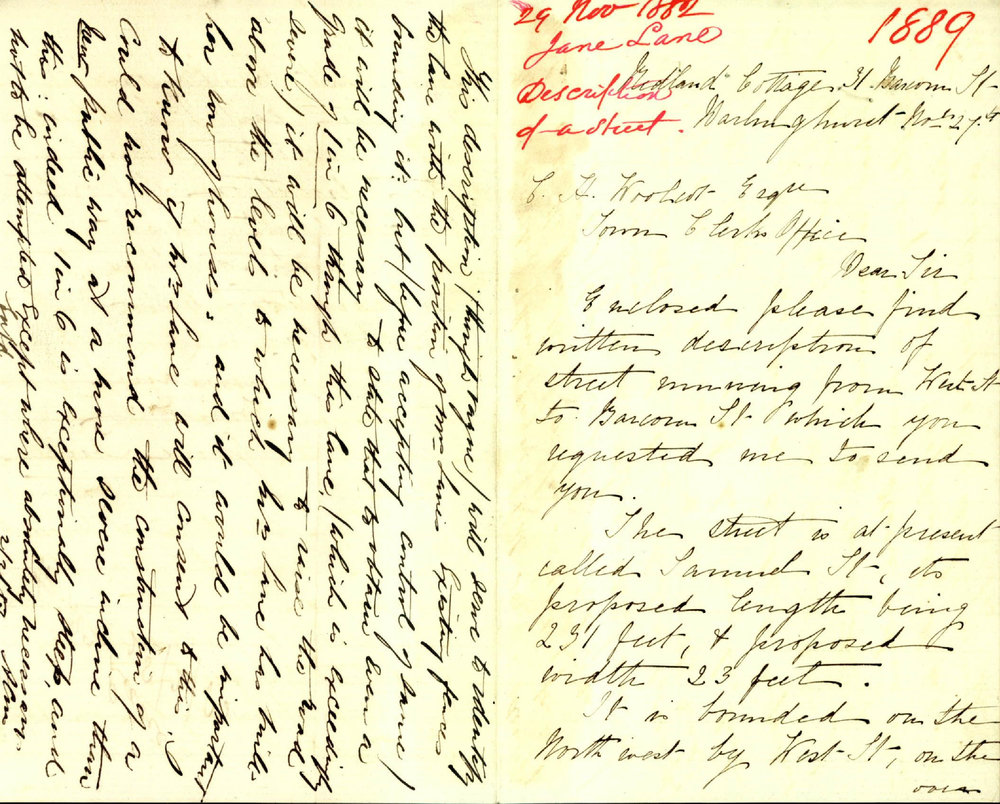 29 Nov 1882
Jane Lane
Description
of a Street.
1889
Cottage 31 Barcom St
Darlinghurst Nov 29th
C. H. Woolcott Esqre
Town Clerks Office
Dear Sir
Enclosed please find
written description of
street running from West St
to Barcom St which you
requested me to send
you.
The street is at present
called Samuel St, its
proposed length being
231 feet, & proposed
width 23 feet.
It is bounded on the
North west by West St, on the
over
The description (though vague) will serve to identify
the lane with the position of Mrs Lanes Existing fences
bounding it: but (before accepting control of same)
it will be necessary to state that to obtain even a
Grade of 1 in 6 through this lane, (which is exceedingly
severe) it will be necessary to raise the road
above the levels to which Mrs Lane has built
her row of houses and it would be important
to know if Mrs Lane will consent to this. I
Could not recommend the construction of a
public way at a more severe incline than
this: indeed 1 in 6 is exceptionally steep, and
not to be attempted Except where absolutely necessary.